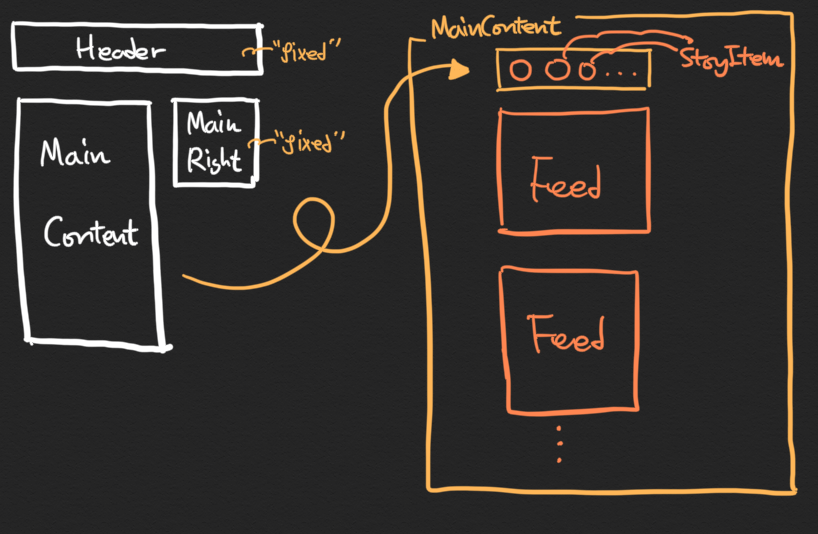 Header
"fixed"
Main
Content
Main
Right
"fixed"
MainContent
StoyItem
Feed
Feed